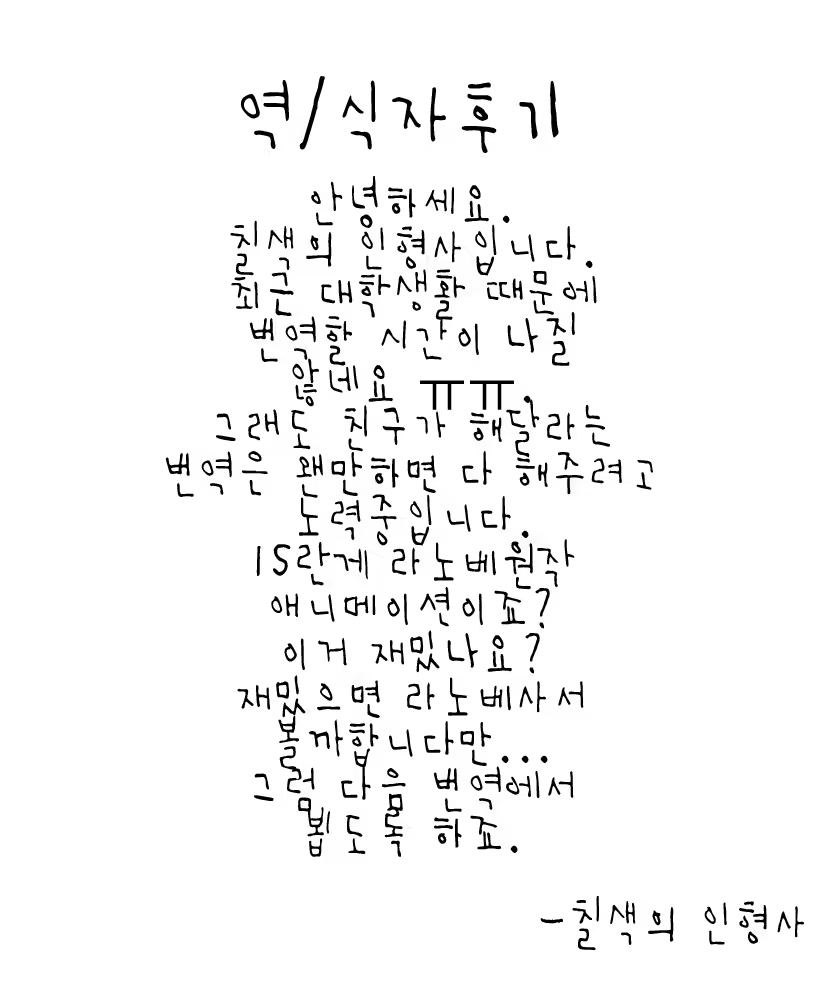 역/식자후기
안녕하세요.
칠색의 인형사입니다.
최근 대학생활 때문에
번역할 시간이 나질
않네요 ㅠㅠ.
그래도 친구가 해달라는
번역은 왠만하면 다 해주려고
노력중입니다.
IS란게 라노베원작
애니메이션이죠?
이거 재밌나요?
재밌으면 라노베사서
볼까합니다만...
그럼 다음 번역에서
뵙도록 하죠.
-칠색의 인형사